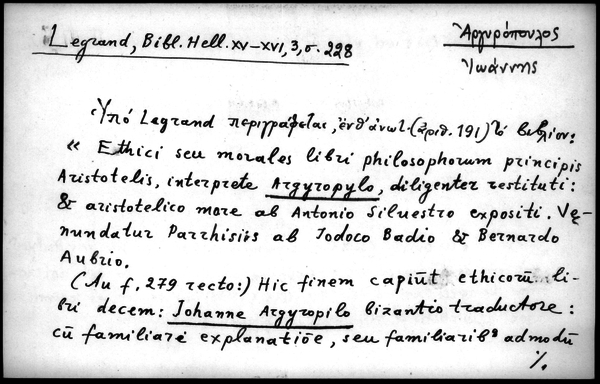 Legrand, Bibl. Hell. XV–XVI, 3, σ. 228
Ἀργυρόπουλος
Ἰωάννης
Ὑπό Legrand περιγράφεται, ἐνθ' ἀνωτ. (ἀριθ. 191) τό βιβλίον:
« Ethici seu morales libri philosophorum principis
Aristotelis, interprete Argyropylo, diligenter restituti:
& aristotelico more ab Antonio Silvestro expositi. Vę-
nundatur Parrhisiis ab Jodoco Badio & Bernardo
Aubrio.
(Au f. 279 recto:) Hic finem capiūt ethicorū li-
bri decem: Johanne Argyropilo bizantio traductore:
cū familiarē explanatiōe, seu familiaribꝰ admodū
./.